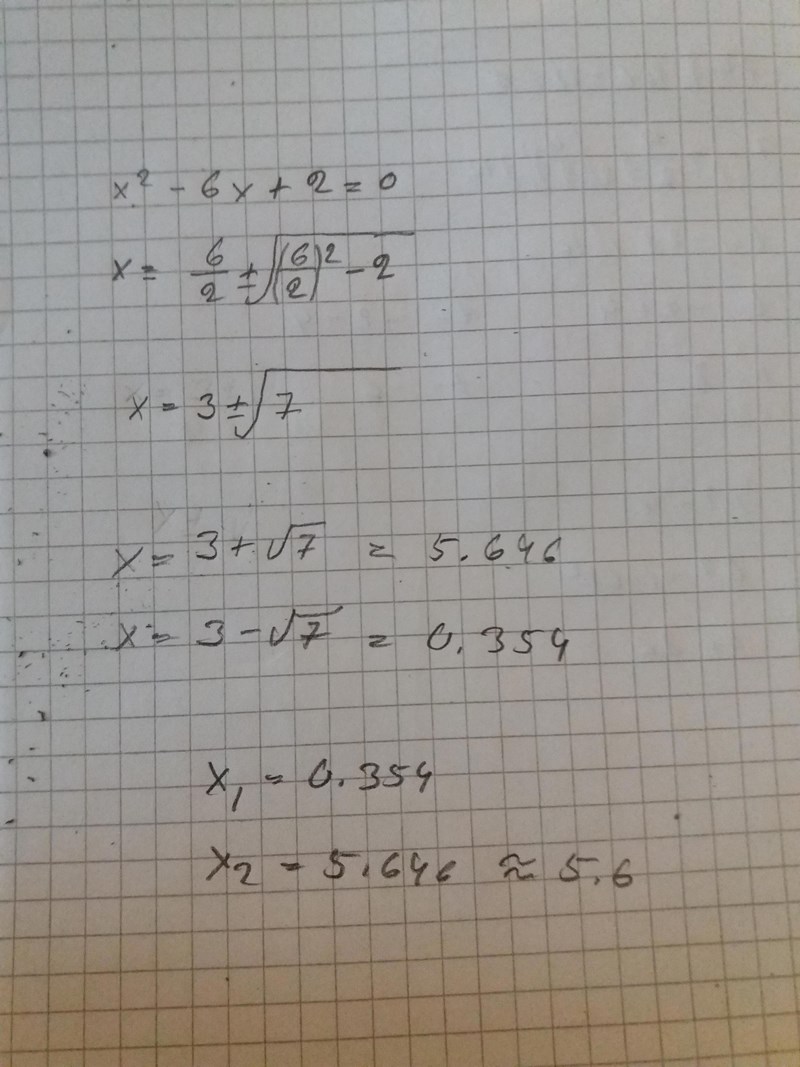 x² - 6x + 2 = 0
x = 6/2 ± √((6/2)² - 2)
x = 3 ± √7
x = 3 + √7 = 5.646
x = 3 - √7 = 0.354
x₁ = 0.354
x₂ = 5.646 ≈ 5.6